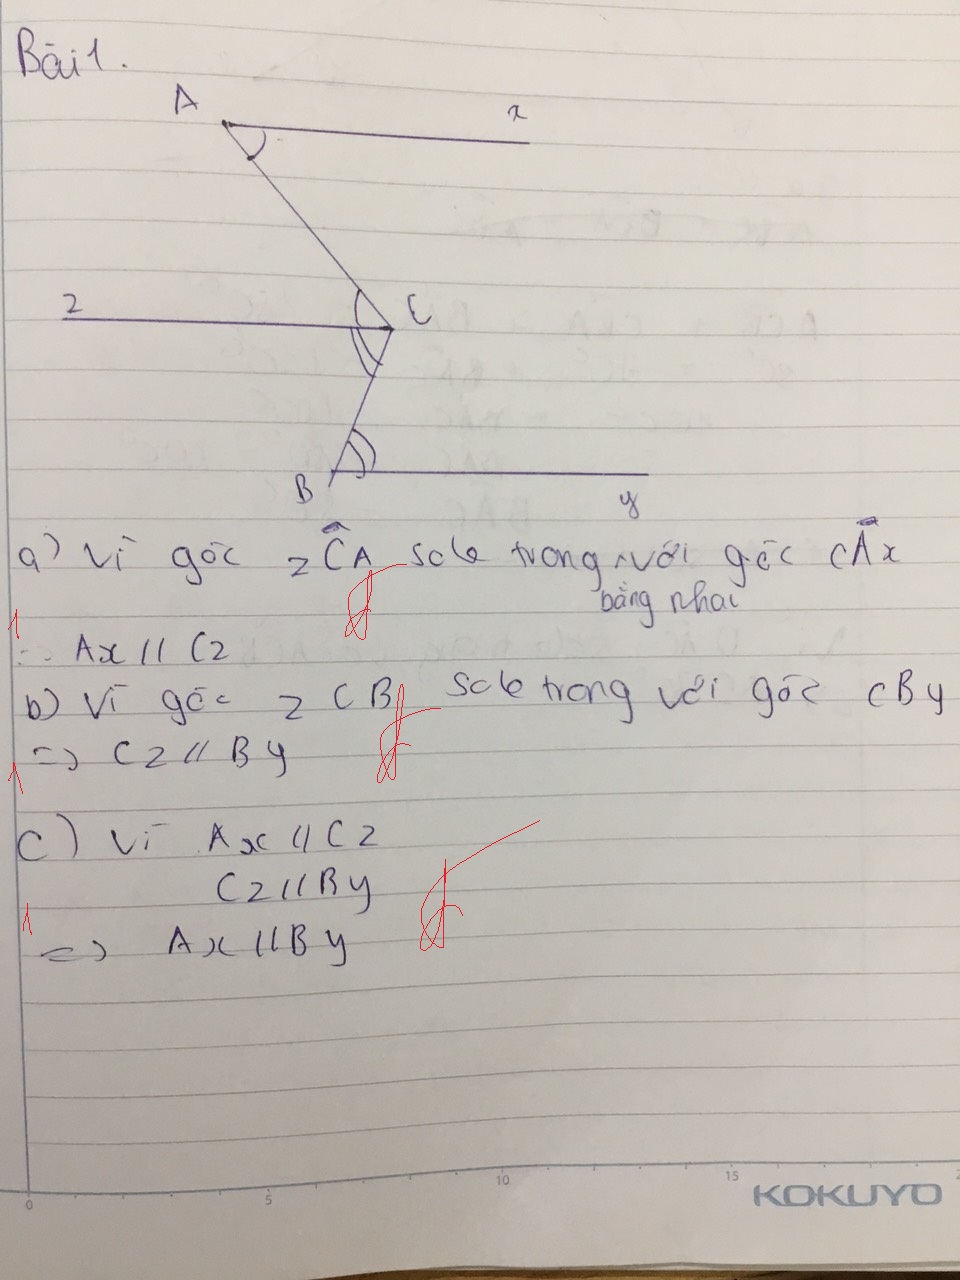 Bài 1.
A
x
z
C
B
y
a) Vì góc zĈA sole trong với góc CÂx
bằng nhau
1
∴ Ax // Cz
b) Vì góc z CB sole trong với góc CBy
=> Cz // By
1
c) Vì Ax // Cz
Cz // By
1
=> Ax // By
0 5 10 15
KOKUYO